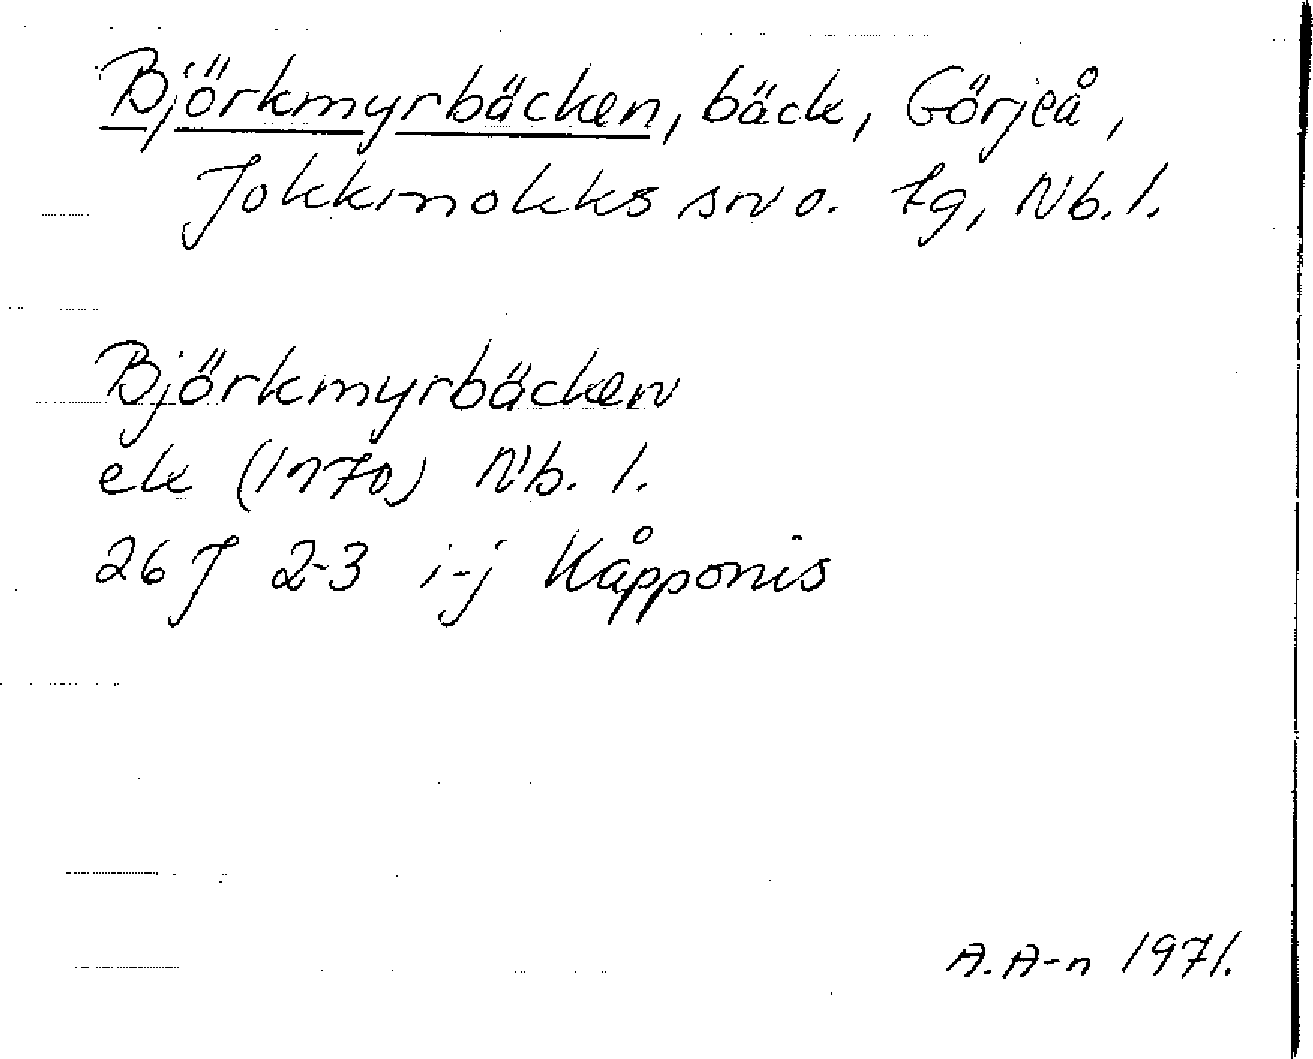 Björkmyrbäcken, bäck, Görjeå,
Jokkmokks sn o. tg, Nb. l.
Björkmyrbäcken
ek (1970) Nb. l.
26 J 2-3 i-j Kåpponis
A. A-n 1971.